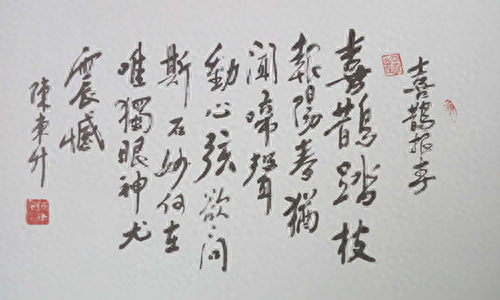 喜鵲报春
喜鵲踏枝
報陽春猶
聞啼聲
動心弦欲问
斯石妙何在
唯獨眼神尤
震憾
陳東升